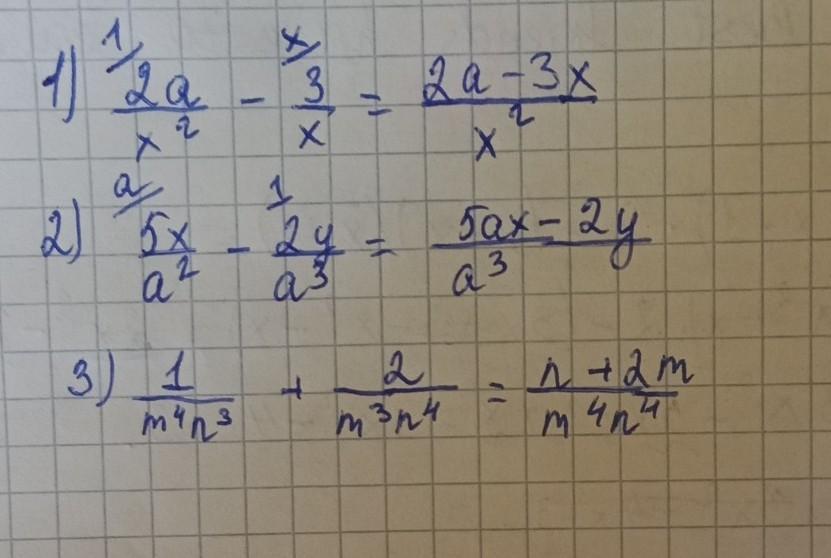 1) 1/ 2a/x² - x/ 3/x = 2a - 3x/x²
2) a/ 5x/a² - 1/ 2y/a³ = 5ax - 2y/a³
3) 1/m⁴n³ + 2/m³n⁴ = n + 2m/m⁴n⁴